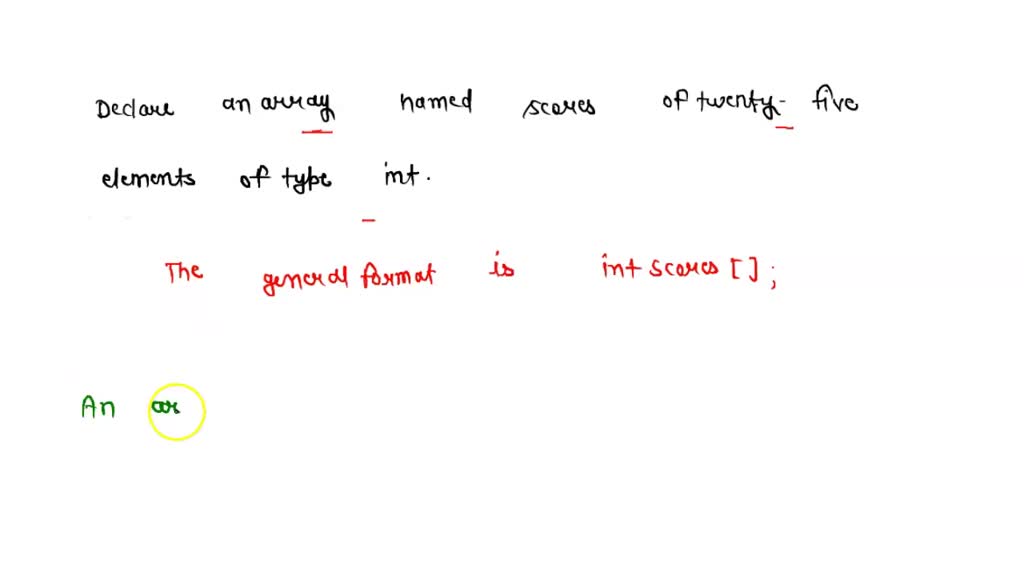 Declare an array named scores of twenty-five
elements of type int.
The general format is int scores [ ] ;
An ar